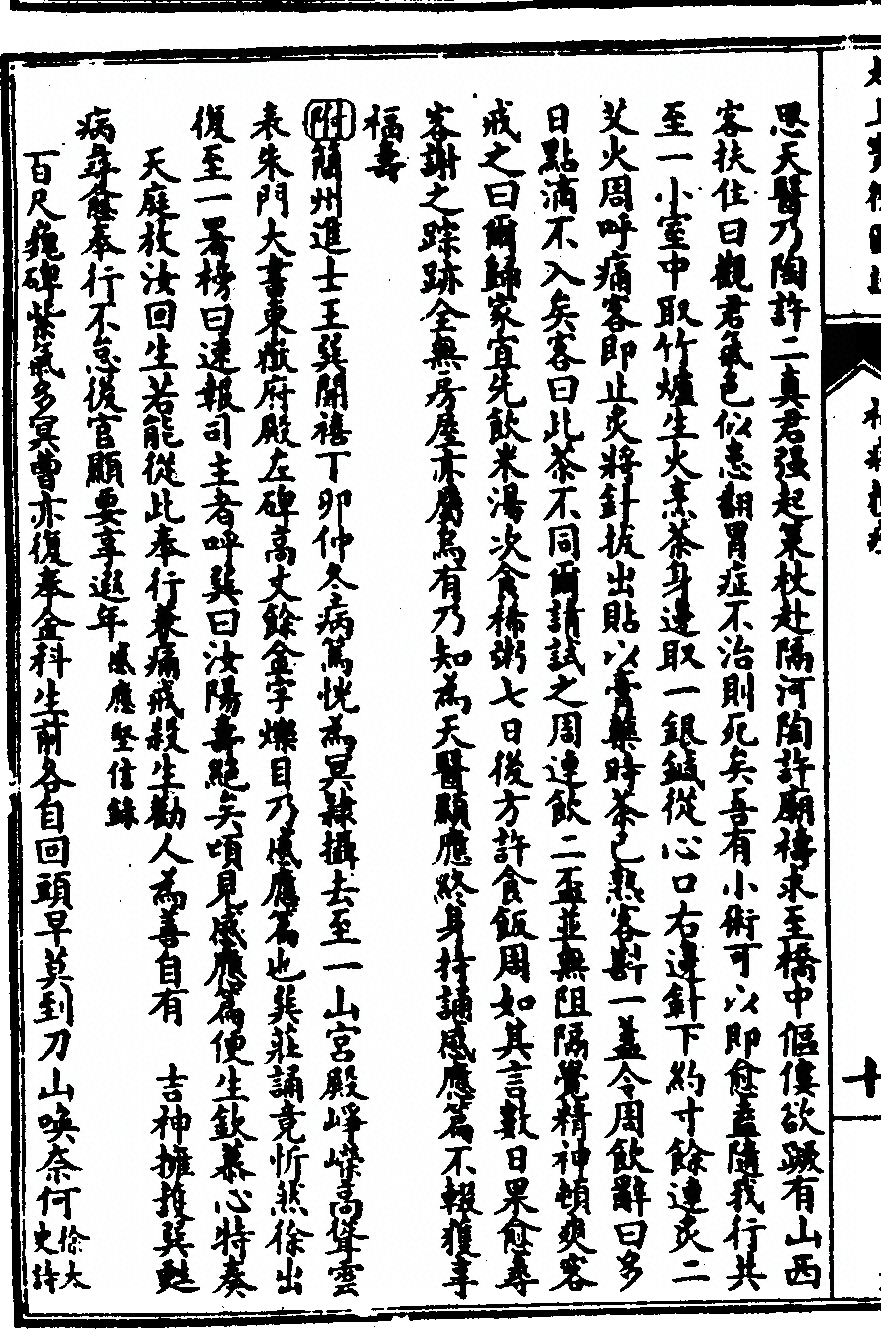 思天醫乃陶許二真君强起策杖赴隔河陶許廟禱求至橋中傴僂欲蹶有山西
客扶住曰觀君氣色似患翻胃症不治則死矣吾有小術可以即愈盍隨我行共
至一小室中取竹爐生火烹茶身邊取一銀鍼從心口右邊針下約寸餘連炙二
艾火周呼痛客即止炙將針拔出貼以膏藥時茶已熟客斟一盞令周飲辭曰多
日點滴不入矣客曰此茶不同爾請試之周連飲二盃並無阻隔覺精神頓爽客
戒之曰爾歸家宜先飲米湯次食稀粥七日後方許食飯周如其言數日果愈尋
客謝之踪跡全無房屋亦屬烏有乃知為天醫顯應終身持誦感應篇不輟獲享
福壽
附簡州進士王巽開禧丁卯仲冬病篤恍為冥隸攝去至一山宮殿崢嶸高聳雲
表朱門大書東嶽府殿左碑高丈餘金字爍目乃感應篇也巽莊誦竟忻然徐出
復至一署榜曰速報司主者呼巽曰汝陽壽絕矣頃見感應篇便生欽慕心特奏
天庭放汝回生若能從此奉行兼痛戒殺生勸人為善自有 吉神擁護巽甦
病尋愈奉行不怠後官顯要享遐年感應堅信錄
百尺巍碑紫氣多冥曹亦復奉金科生前各自回頭早莫到刀山喚奈何徐太史詩